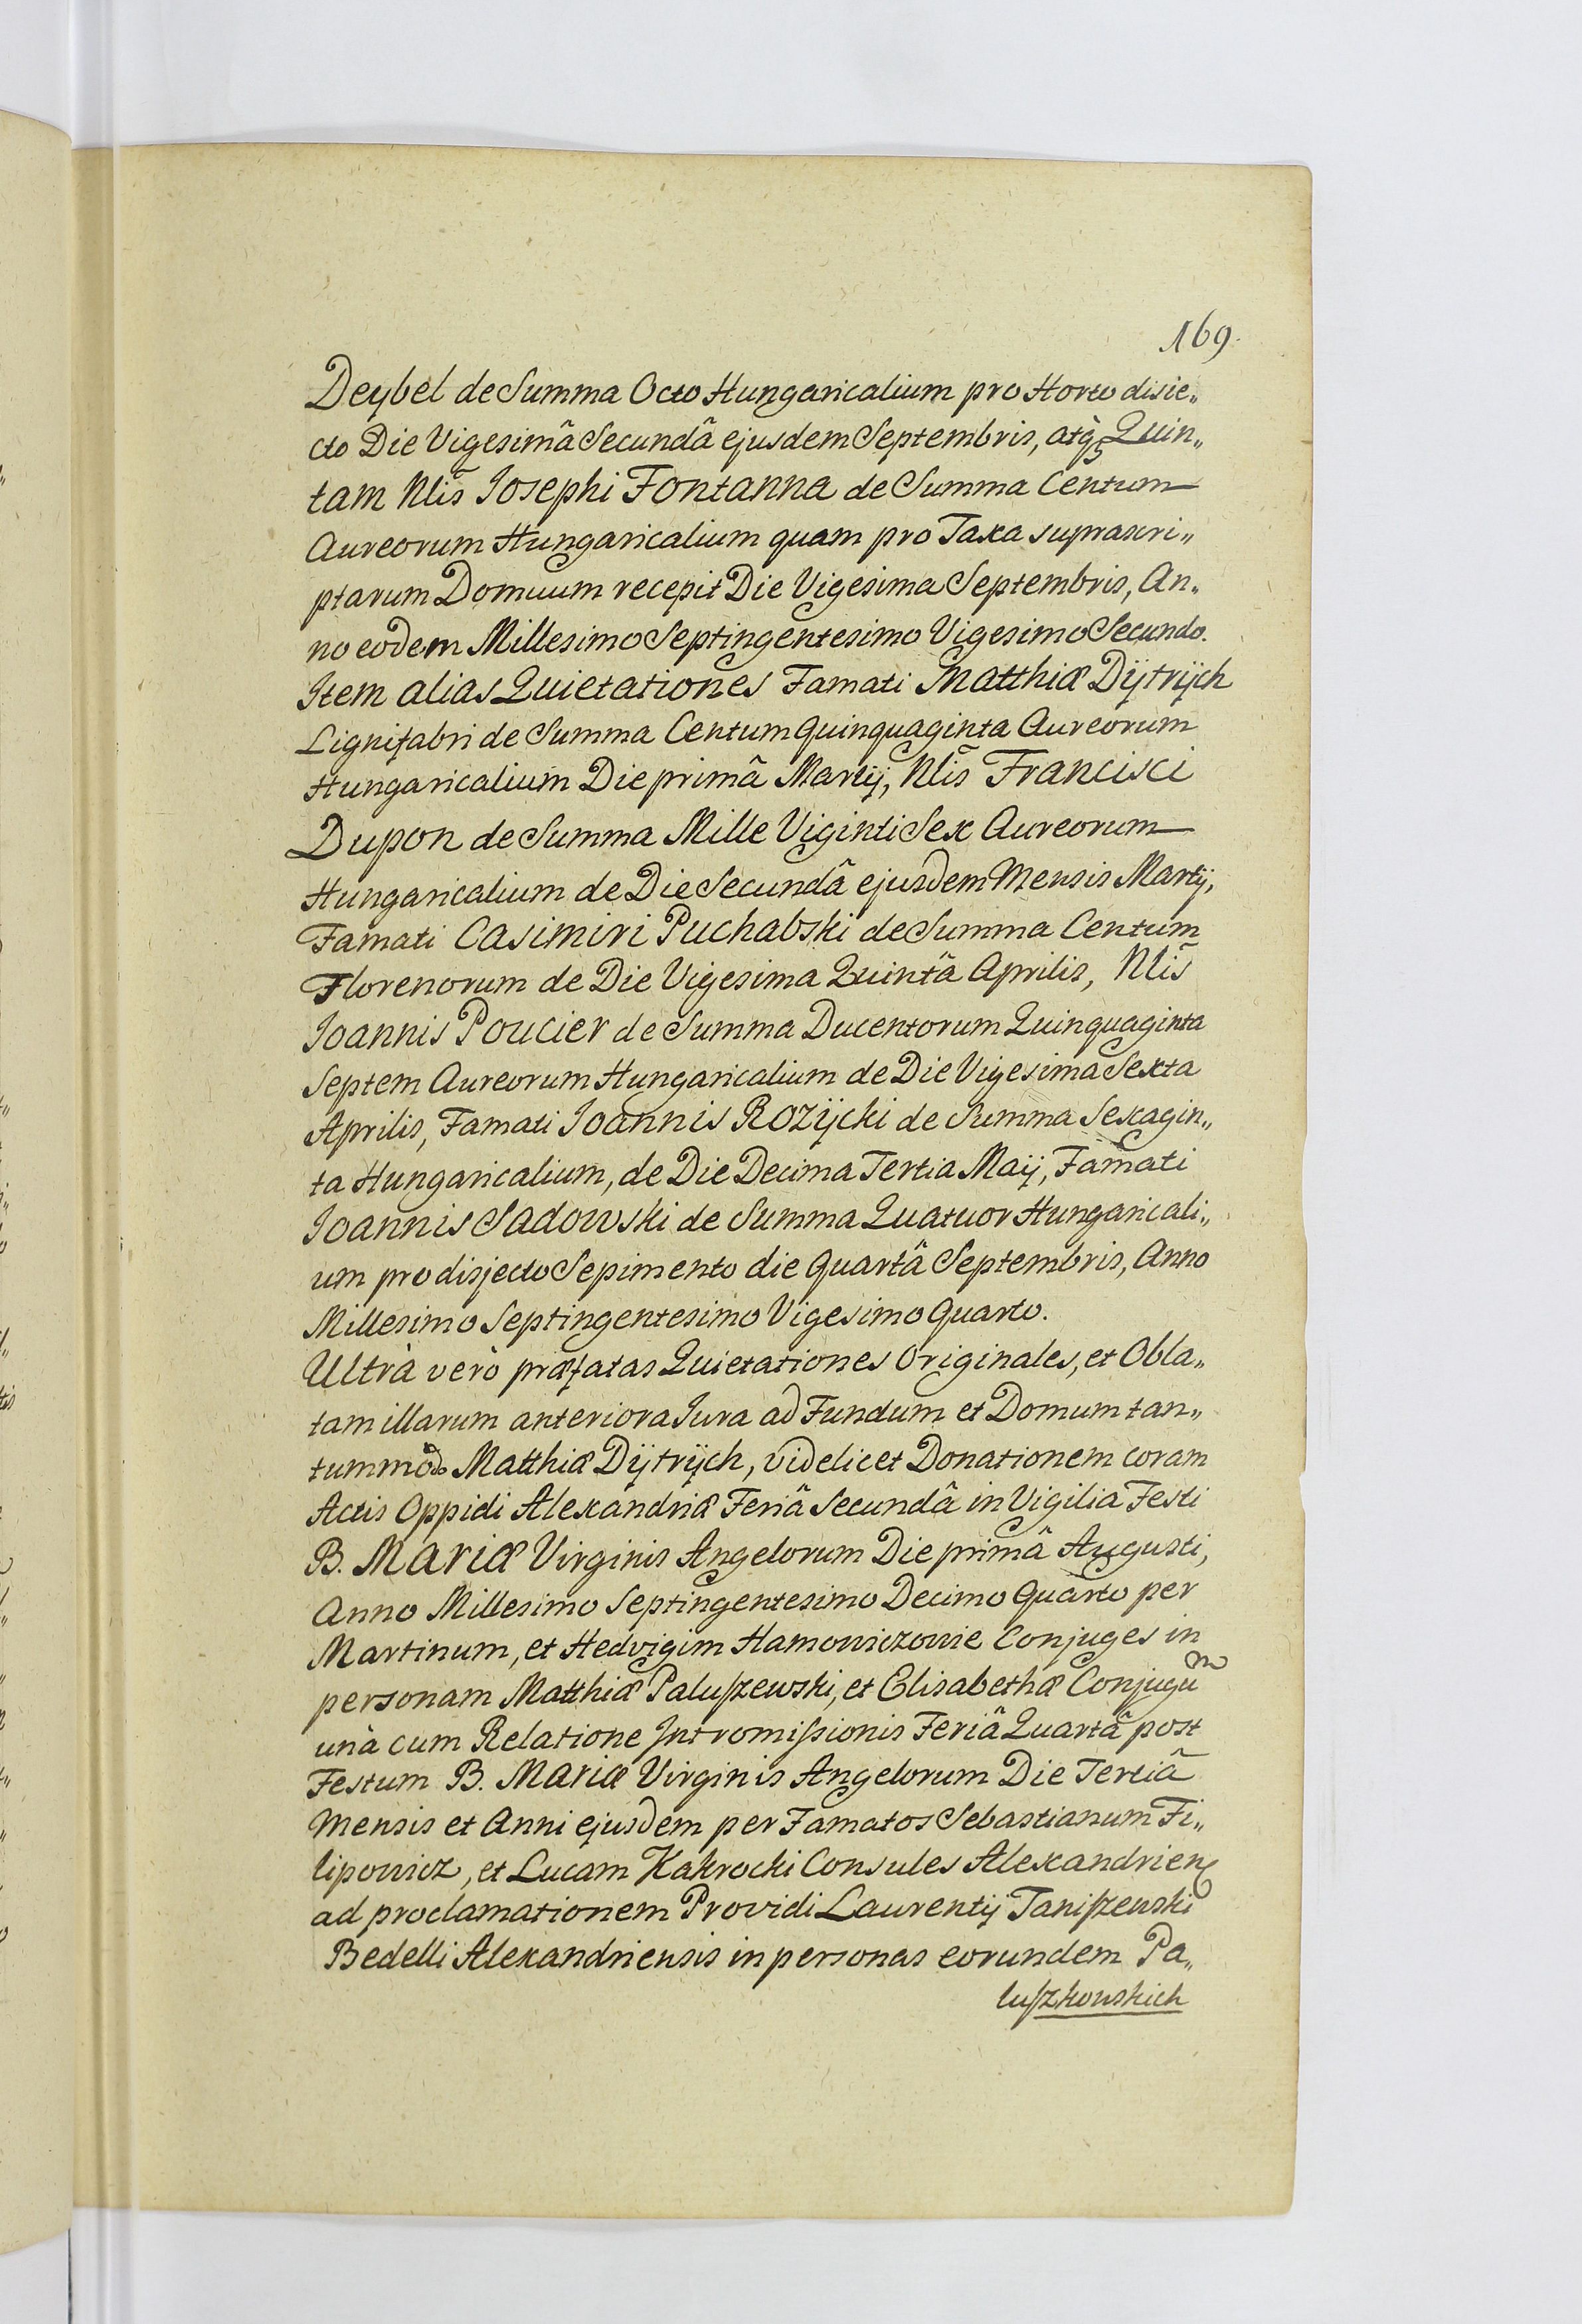 169.
Deybel de Summa Octo Hungaricalium pro Horto disie„
cto Die Vigesimâ Secundâ ejusdem Septembris, atq̀3 Quin„
tam Nlis̃ Josephi Fontanna de Summa Centum
Aureorum Hungaricalium quam pro Taxa suprascri„
ptarum Domuum recepit Die Vigesima Septembris, An„
no eodem Millesimo Septingentesimo Vigesimo Secundo.
Item alias Quietationes Famati Matthiæ Dÿtrÿch
Lignifabri de Summa Centum quinquaginta Aureorum
Hungaricalium Die primâ Martij, Nlis̃ Francisci
Dupon de Summa Mille Viginti Sex Aureorum
Hungaricalium de Die Secundâ ejusdem Mensis Martij,
Famati Casimiri Puchalski de Summa Centum
Florenorum de Die Vigesima Quintâ Aprilis, Nlis̃
Joannis Poucier de Summa Ducentorum Quinquaginta
Septem Aureorum Hungaricalium de Die Vigesima Sexta
Aprilis, Famati Joannis Rozÿcki de Summa Sexagin„
ta Hungaricalium, de Die Decima Tertia Maij, Famati
Joannis Sadowski de Summa Quatuor Hungaricali„
um pro disjecto Sepimento die quartâ Septembris, Anno
Millesimo Septingentesimo Vigesimo quarto.
Ultrà verò præfatas Quietationes Originales, et Obla„
tam illarum anteriora Jura ad Fundum et Domum tan„
tummodò Matthiæ Dÿtrÿch, videlicet Donationem coram
Actis Oppidi Alexandriæ Feriâ Secundâ in Vigilia Festi
B. Mariæ Virginis Angelorum Die primâ Augusti,
Anno Millesimo Septingentesimo Decimo quarto per
Martinum, et Hedvigim Hamowiczowie Conjuges in
personam Matthiæ Paluſzewski, et Elisabethæ Conjugum
unà cum Relatione Intromiſsionis Feriâ Quartâ post
Festum B. Mariæ Virginis Angelorum Die Tertiâ
Mensis et Anni ejusdem per Famatos Sebastianum Fi„
lipowicz, et Lucam Kakrocki Consules Alexandrien̄
ad proclamationem Providi Laurentij Taniſzewski
Bedelli Alexandriensis in personas eorundem Pa„
luſzkowskich